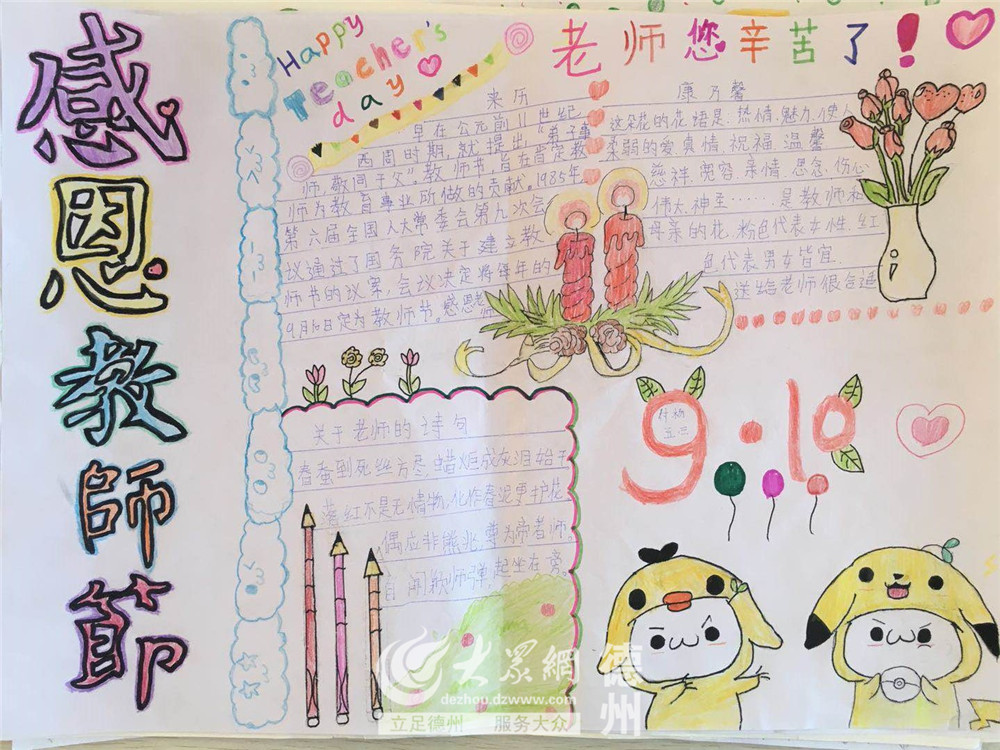 感恩教師節
Happy
Teacher's
day
老师您辛苦了!
来历
早在公元前11世纪
西周时期,就提出“弟子事
师,敬同于父”。教师节,旨在肯定教
师为教育事业所做的贡献。1985年
第六届全国人大常委会第九次会
议通过了国务院关于建立教
师节的议案,会议决定将每年的
9月10日定为教师节。感恩老
康乃馨
这朵花的花语是:热情、魅力、使人
柔弱的爱、真情、祝福、温馨
慈祥、宽容、亲情、思念、伤心
伟大、神圣……是教师和
母亲的花,粉色代表女性,红
色代表男女皆宜
送给老师很合适
关于老师的诗句
春蚕到死丝方尽,蜡炬成灰泪始干
落红不是无情物,化作春泥更护花。
偶应非熊兆,尊为帝者师。
起坐在旁。
9.10
大众網
dezhou.dzwww.com
立足德州 服务大众
德州